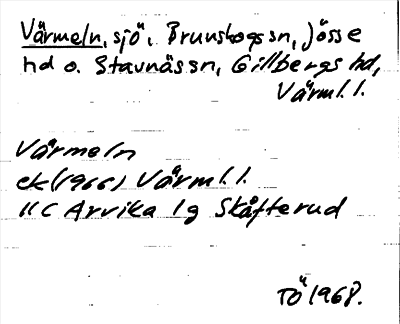 Värmeln, sjö i Brunskogs sn, Jösse
hd o. Stavnäs sn, Gillbergs hd,
Värml. l.
Värmeln
ek (1966) Värml. l.
11C Arvika 1g Skåfterud
TÖ 1968.